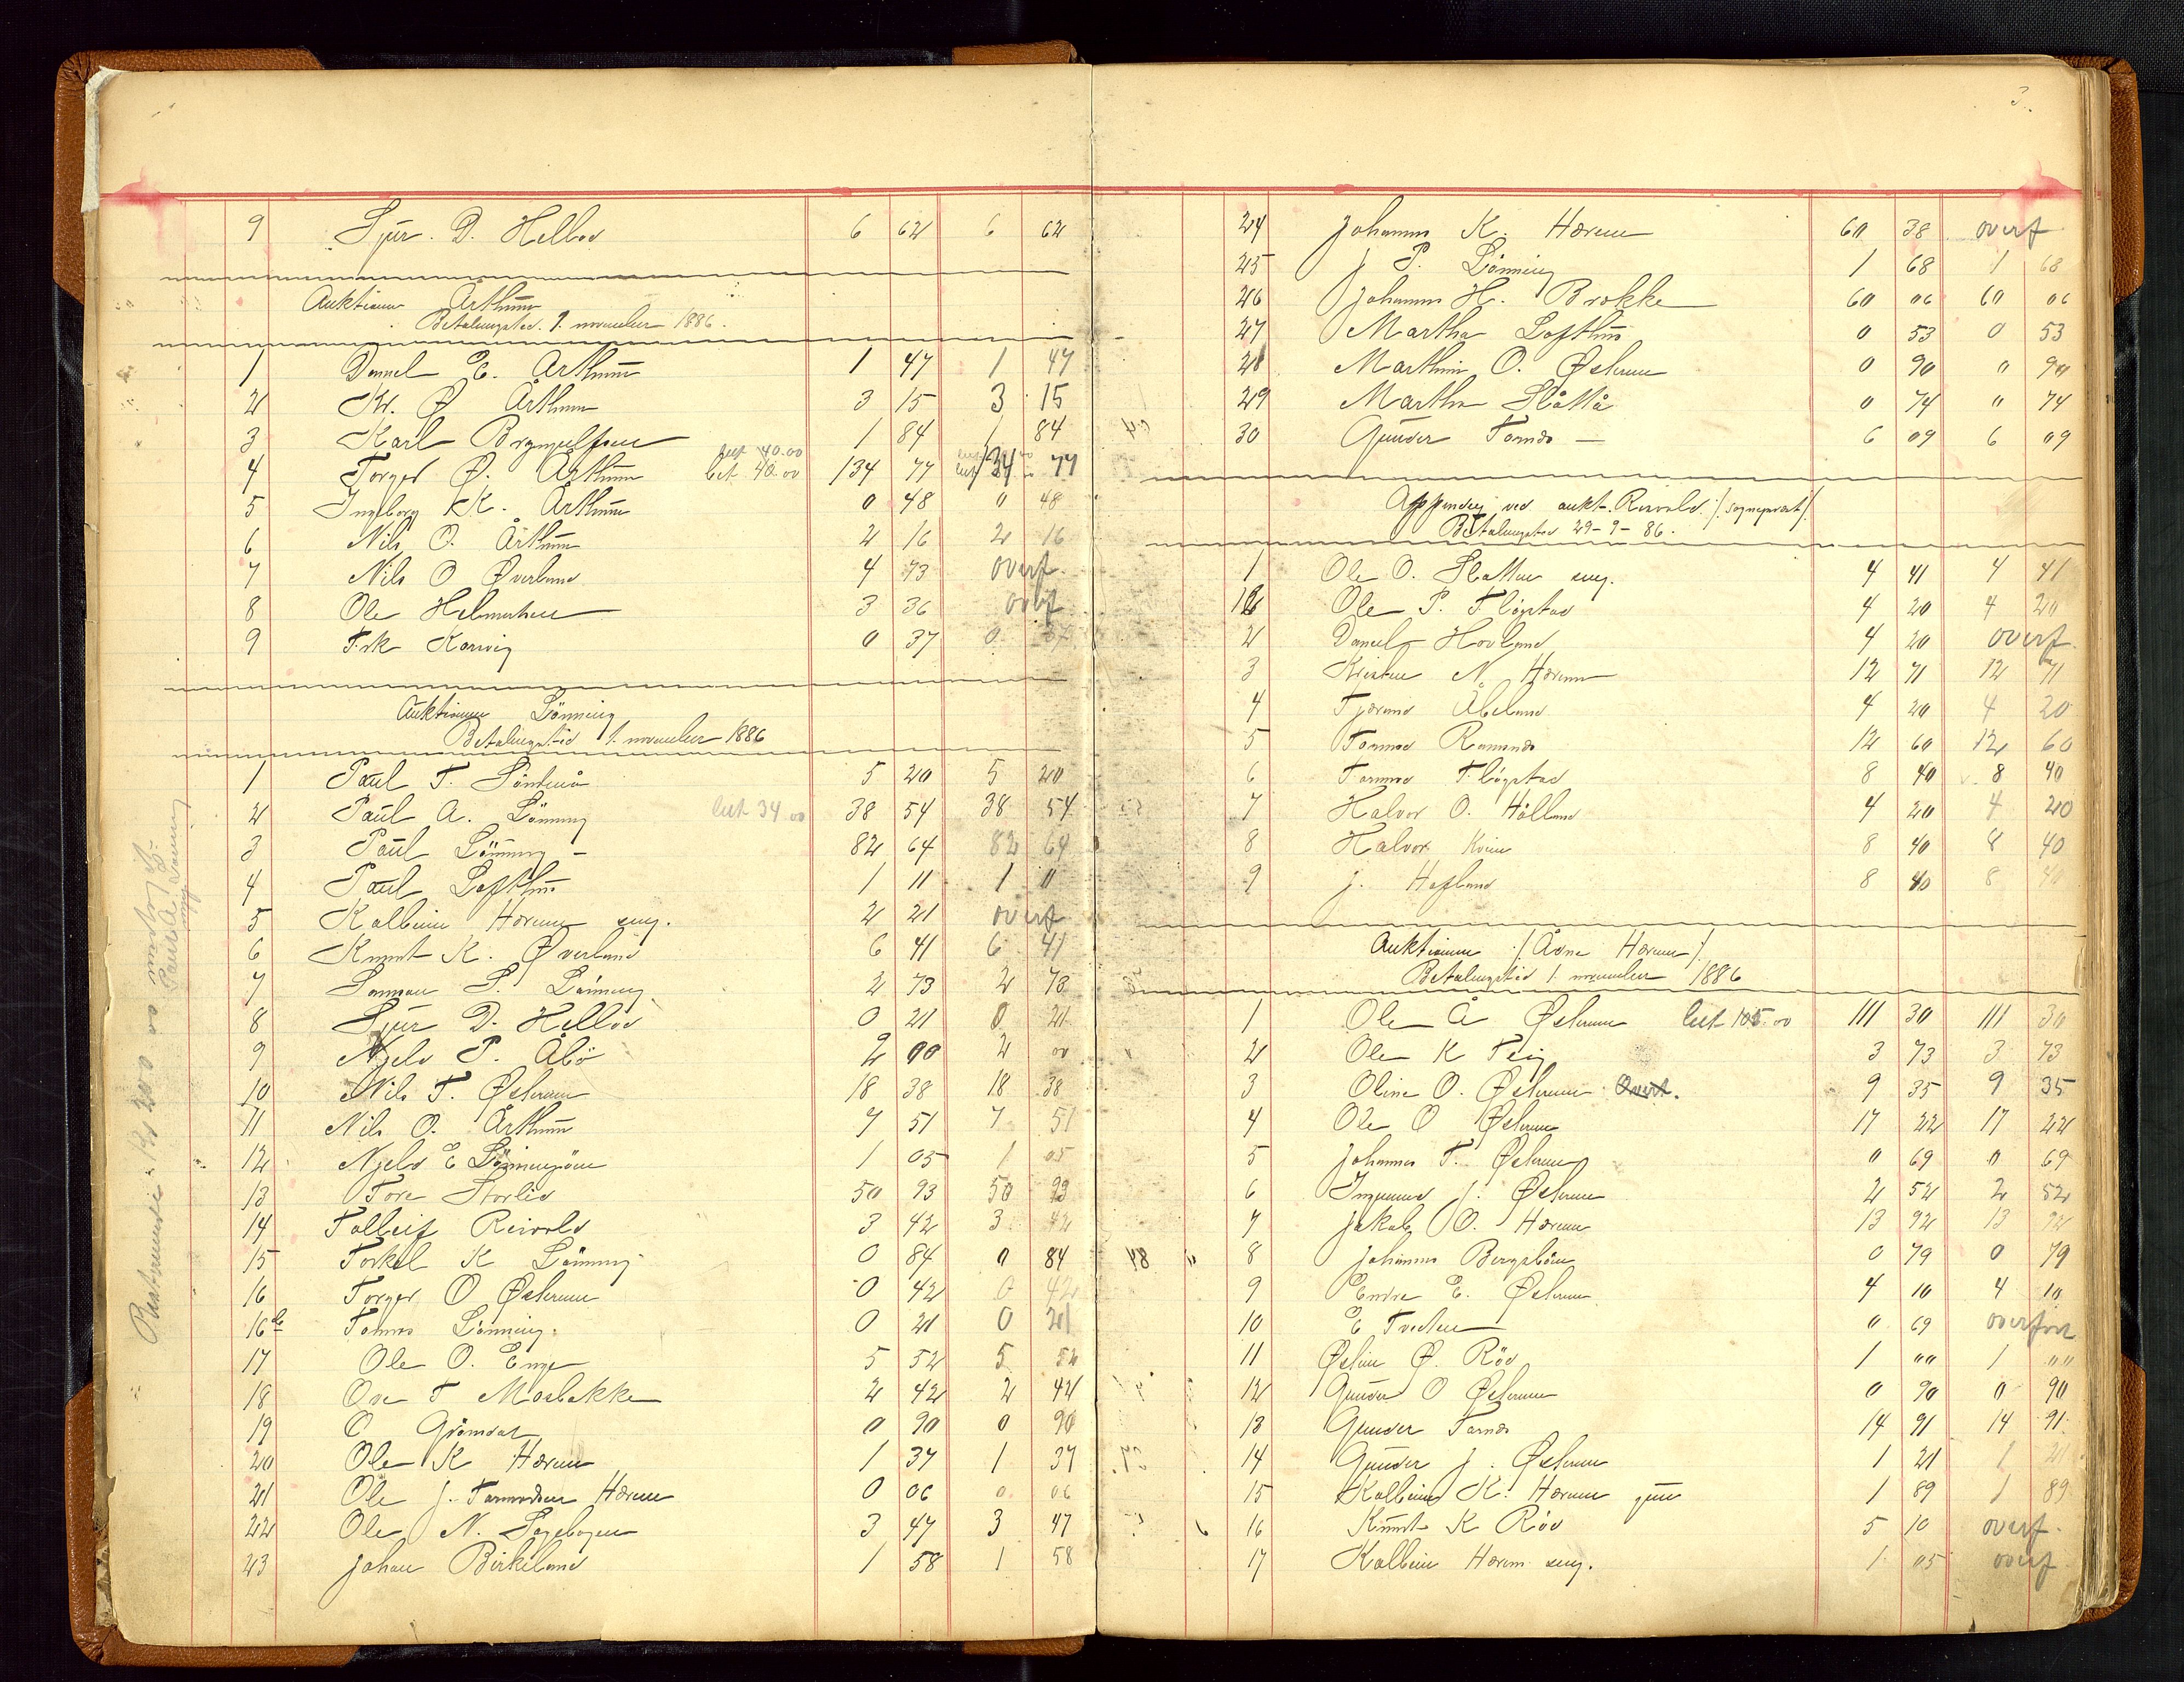 9 Sjur. D. Hellod 6 62 6 62
Auktionen Århum
Betalingstid. 1. november 1886.
1 Daniel E. Århum 1 47 1 47
2 Kr. Ø Århum 3 15 3 15
3 Karl Brynjulfsen 1 84 1 84
bet 40.00
4 Torger Ø. Århum bet 40.00 134 77 134 77
5 Ingeborg K. Århum 0 48 0 48
6 Nils O. Århum 2 16 2 16
7 Nils O Øverland 4 73 overf.
8 Ole Helmiksen 3 36 overf
9 Frk Korsvig 0 37 0 37
Auktionen Lönning
Betalingstid 1. november 1886
1 Paul T. Söntenå 5 20 5 20
2 Paul A. Lönning bet 34 00 38 54 38 54
3 Paul Lönning - 82 64 82 64
4 Paul Lofthus 1 11 1 11
5 Kolbein Hoven sen. 2 21 overf
6 Knut K. Øverland 6 41 6 41
7 Samson S. Lönning 2 73 2 73
8 Sjur D. Hellod 0 21 0 21
9 Njeld P. Åbö 2 00 2 00
10 Nils T. Østerum 18 38 18 38
11 Nils O. Århum 7 51 7 51
12 Njeld E Lönningsöen 1 05 1 05
13 Tore Storlid 50 93 50 93
14 Tolleif Reivold 3 42 3 42
15 Torkel K Lönning 0 84 0 84
16 Torger O Østerum 0 42 0 42
16b Tomas Lönning. 0 21 0 21
17 Ole O. Enge 5 52 5 52
18 Ove T Mosbakke 2 42 2 42
19 O Grömdal 0 90 0 90
20 Ole K Hoven 1 37 1 37
21 Ole J. Tarmodsen Hoven 0 06 0 06
22 Ole N. Sagebogen 3 47 3 47
23 Johan Birkeland 1 58 1 58
Paul A Lönning
3.
24 Johannes K. Hoven 60 38 overf
25 J P. Lönning 1 68 1 68
26 Johannes H. Brokke 60 06 60 06
27 Martha Lofthus 0 53 0 53
28 Marthin O. Østerum 0 90 0 90
29 Martha Slåttå 0 74 0 74
30 Gunder Tarnds — 6 09 6 09
Appendix ved aukt. Reivold /: Sogneprest :/
Betalingstid 29-9-86.
1 Ole O. Slatten sen. 4 41 4 41
1b Ole P. Fløystad 4 20 4 20
2 Daniel Hovland 4 20 overf.
3 Kristen N. Hoven 12 71 12 71
4 Tjørand Åbeland 4 20 4 20
5 Tormod Ramnds 12 60 12 60
6 Tormod Fløystad 8 40 8 40
7 Halvor O. Hålland 4 20 4 20
8 Halvor Kvim 8 40 8 40
9 J. Hafland 8 40 8 40
Auktionen /: Ådne Hoven :/
Betalingstid 1. november 1886
1 Ole Å Østerum bet 105.00 111 30 111 30
2 Ole K Teig 3 73 3 73
3 Oline O. Østerum Overf. 9 35 9 35
4 Ole O Østerum 17 22 17 22
5 Johannes T. Østerum 0 69 0 69
6 Ingemund J. Østerum 2 52 2 52
7 Jakob O. Hoven 13 92 13 92
8 Johannes Bergsböen 0 79 0 79
9 Endre E. Østerum 4 10 4 10
10 E Tveten 0 69 overfört
11 Østen Ø. Röd 1 00 1 00
12 Gunder O Østerum 0 90 0 90
13 Gunder Tarnds 14 91 14 91
14 Gunder J. Østerum 1 21 1 21
15 Kolbein K. Hoven jun 1 89 1 89
16 Knut K Röd 5 10 overf.
17 Kolbein Hoven sen. 1 05 overf